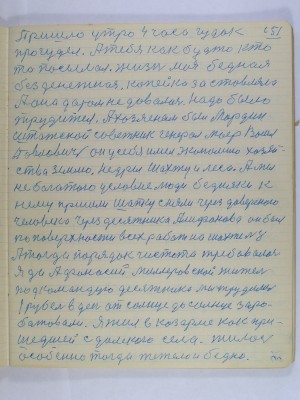 (5)
Пришло утро 4 часа гудок
прогудел. А тебя как будто кто
то посылал. жизнь моя бедная
безденежная, копейка заставляла
А она даром не давалась. надо было
трудится. А хозяином был Мордвин
штатской советник генерал
Павлович он у себя имел
ства землю. недрил шахту и леса. А мы
не богатого условие люди бедняки к
нему пришли шахту сняли через довереного
человека через десятника Агифанова он был
по поверхности всех работ на шахте му
А тогда порядок чистота требовалася
Я да Афонасий житель
под командую десятника мы трудились
1 рубель в ден от солнце до солнце зара-
батовали. Я жил в казарме как при-
шедшей с далекого села. жилось
особенно тогда тяжело и бедно.